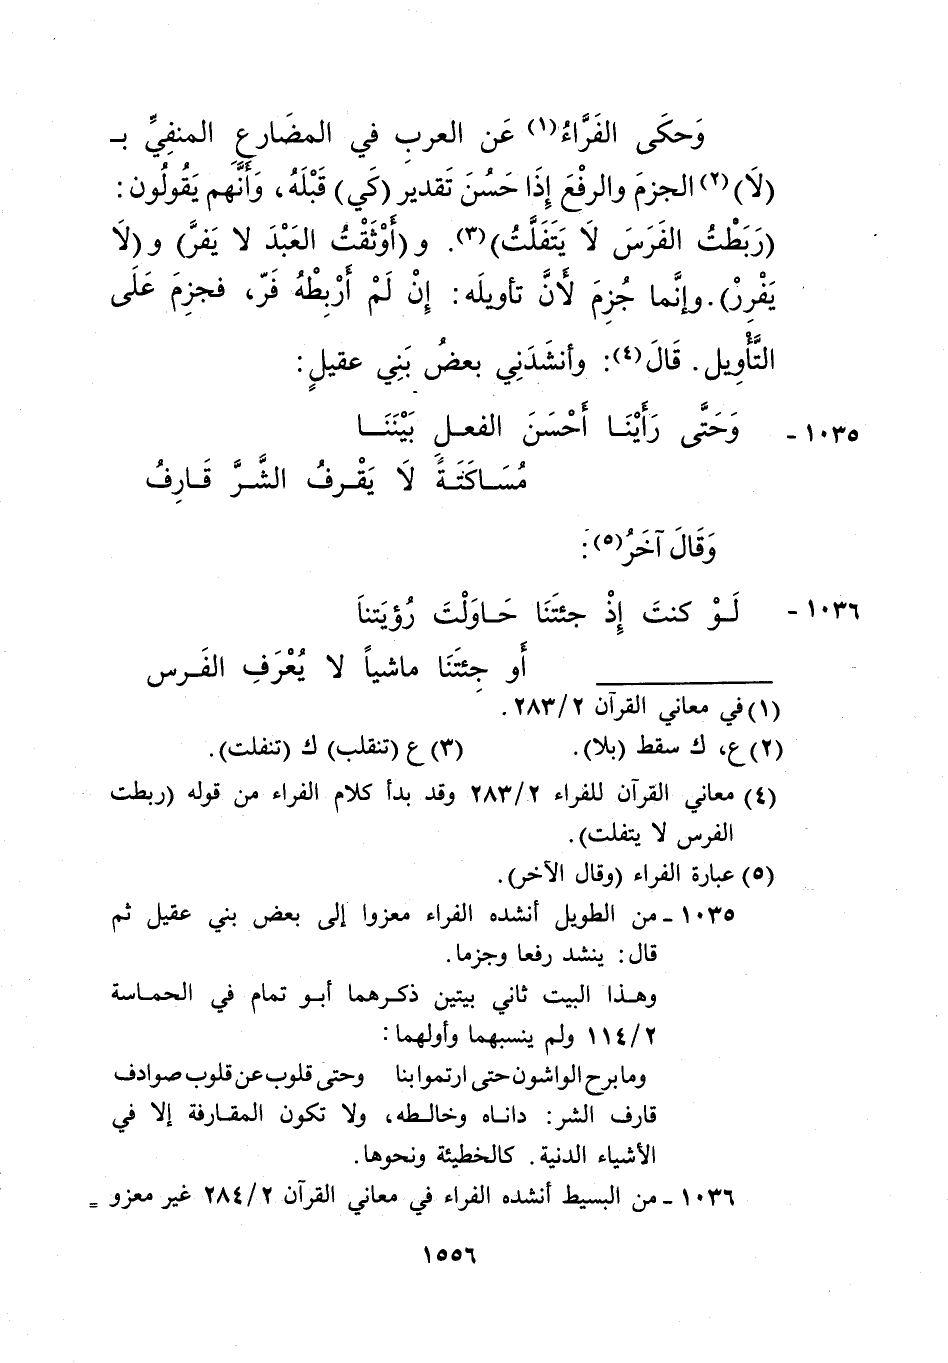 وَحكَى الفَرَّاءُ(١) عَن العربِ في المضَارعِ المنفِيِّ بـ
(لَا)(٢) الجزمَ والرفْعَ إِذَا حَسُنَ تَقدير (كَي) قَبْلَهُ، وَأَنَّهم يَقُولُون:
(رَبَطْتُ الفَرَسَ لَا يَتَفَلَّتُ)(٣). و (أَوْثَقْتُ العَبْدَ لا يَفرَّ) و (لَا
يَفْرِرْ). وإنَّما جُزِمَ لأَنَّ تأويلَه: إِنْ لَمْ أَرْبِطْهُ فَرّ، فجزِمَ عَلَى
التَّأْوِيل. قَالَ(٤): وأنشَدَنِي بعضُ بَنِي عقيلٍ:
١٠٣٥ - وَحَتَّى رَأَيْنَا أَحْسَنَ الفعلِ بَيْنَنَا
مُسَاكَتَةً لَا يَقْرفُ الشَّرَّ قَارِفُ
وَقَالَ آخَرُ(٥):
١٠٣٦ - لَوْ كنتَ إِذْ جئتَنَا حَاوَلْتَ رُؤيَتنَا
أَو جِئتَنَا ماشياً لا يُعْرَفِ الفَرس
(١) في معاني القرآن ٢/ ٢٨٣.
(٢) ع، ك سقط (بلا). (٣) ع (تنقلب) ك (تنفلت).
(٤) معاني القرآن للفراء ٢/ ٢٨٣ وقد بدأ كلام الفراء من قوله (ربطت
الفرس لا يتفلت).
(٥) عبارة الفراء (وقال الآخر).
١٠٣٥ - من الطويل أنشده الفراء معزوا إلى بعض بني عقيل ثم
قال: ينشد رفعا وجزما.
وهذا البيت ثاني بيتين ذكرهما أبو تمام في الحماسة
٢/ ١١٤ ولم ينسبهما وأولهما:
وما برح الواشون حتى ارتموا بنا وحتى قلوب عن قلوب صوادف
قارف الشر: داناه وخالطه، ولا تكون المقارفة إلا في
الأشياء الدنية. كالخطيئة ونحوها.
١٠٣٦ - من البسيط أنشده الفراء في معاني القرآن ٢/ ٢٨٤ غير معزو =
١٥٥٦